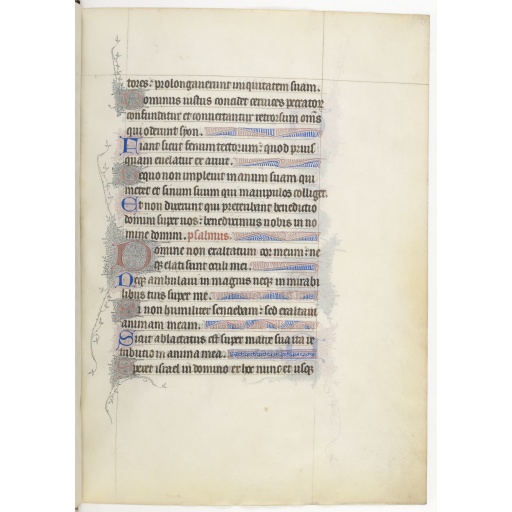 tores: prolongauerunt iniquitatem suam.
Dominus iustus concidet ceruices peccator
confundantur et conuertantur retrorsum om̄s
qui oderunt syon.
Fiant sicut fenum tectorum: quod prius
quam euelatur exaruit.
De quo non impleuit manum suam qui
metet et sinum suum qui manipulos colliget.
Et non dixerunt qui preteribant benedictio
domini super uos: benediximus uobis in no
mine domini. psalmus.
Domine non est exaltatum cor meum: ne
qꝫ elati sunt oculi mei.
Neqꝫ ambulaui in magnis neqꝫ in mirabi
libus super me.
Si non humiliter sentiebam: sed exaltaui
animam meam.
Sicut ablactatus est super matre sua ita re
tributio in anima mea.
Speret israel in domino ex hoc nunc et usqꝫ